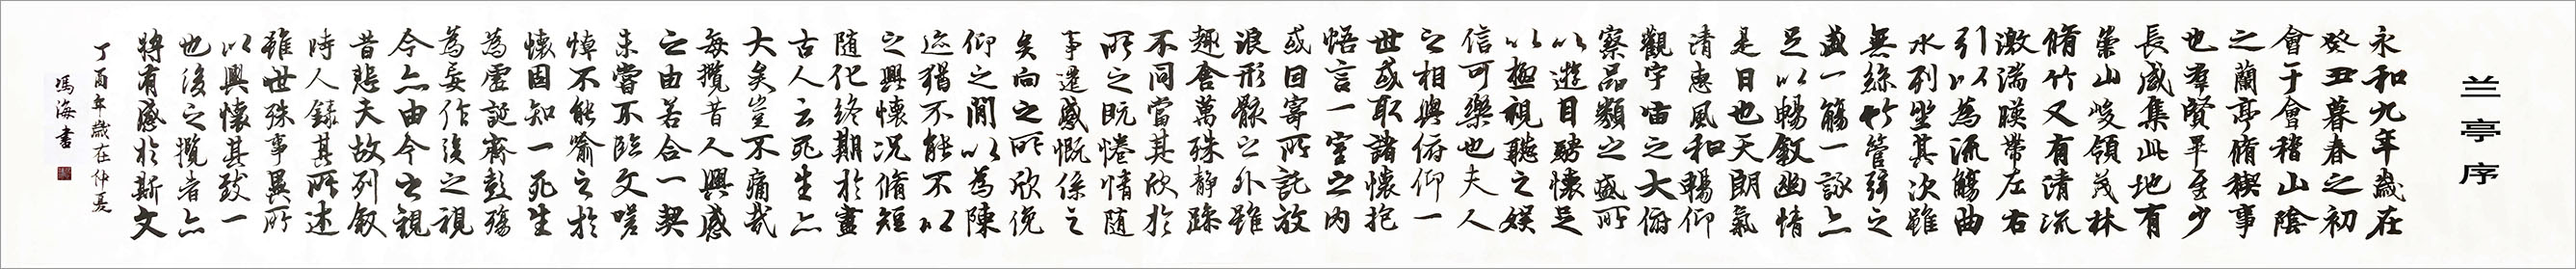 兰亭序
永和九年歲在
癸丑暮春之初
會于會稽山陰
之蘭亭脩稧事
也羣賢畢至少
長咸集此地有
崇山峻領茂林
脩竹又有清流
激湍暎帶左右
引以為流觴曲
水列坐其次雖
無絲竹管弦之
盛一觴一詠亦
足以暢敘幽情
是日也天朗氣
清惠風和暢仰
觀宇宙之大俯
察品類之盛所
以遊目騁懷足
以極視聽之娛
信可樂也夫人
之相與俯仰一
世或取諸懷抱
悟言一室之内
或因寄所託放
浪形骸之外雖
趣舍萬殊静躁
不同當其欣於
所之既惓情随
事遷感慨係之
矣向之所欣俛
仰之閒以為陳
迹猶不能不以
之興懷况脩短
随化終期於盡
古人云死生亦
大矣豈不痛哉
每攬昔人興感
之由若合一契
未嘗不臨文嗟
悼不能喻之於
懷固知一死生
為虛誕齊彭殤
為妄作後之視
今亦由今之視
昔悲夫故列敘
時人錄其所述
雖世殊事異所
以興懷其致一
也後之攬者亦
將有感於斯文
丁酉年歲在仲夏
馮海書